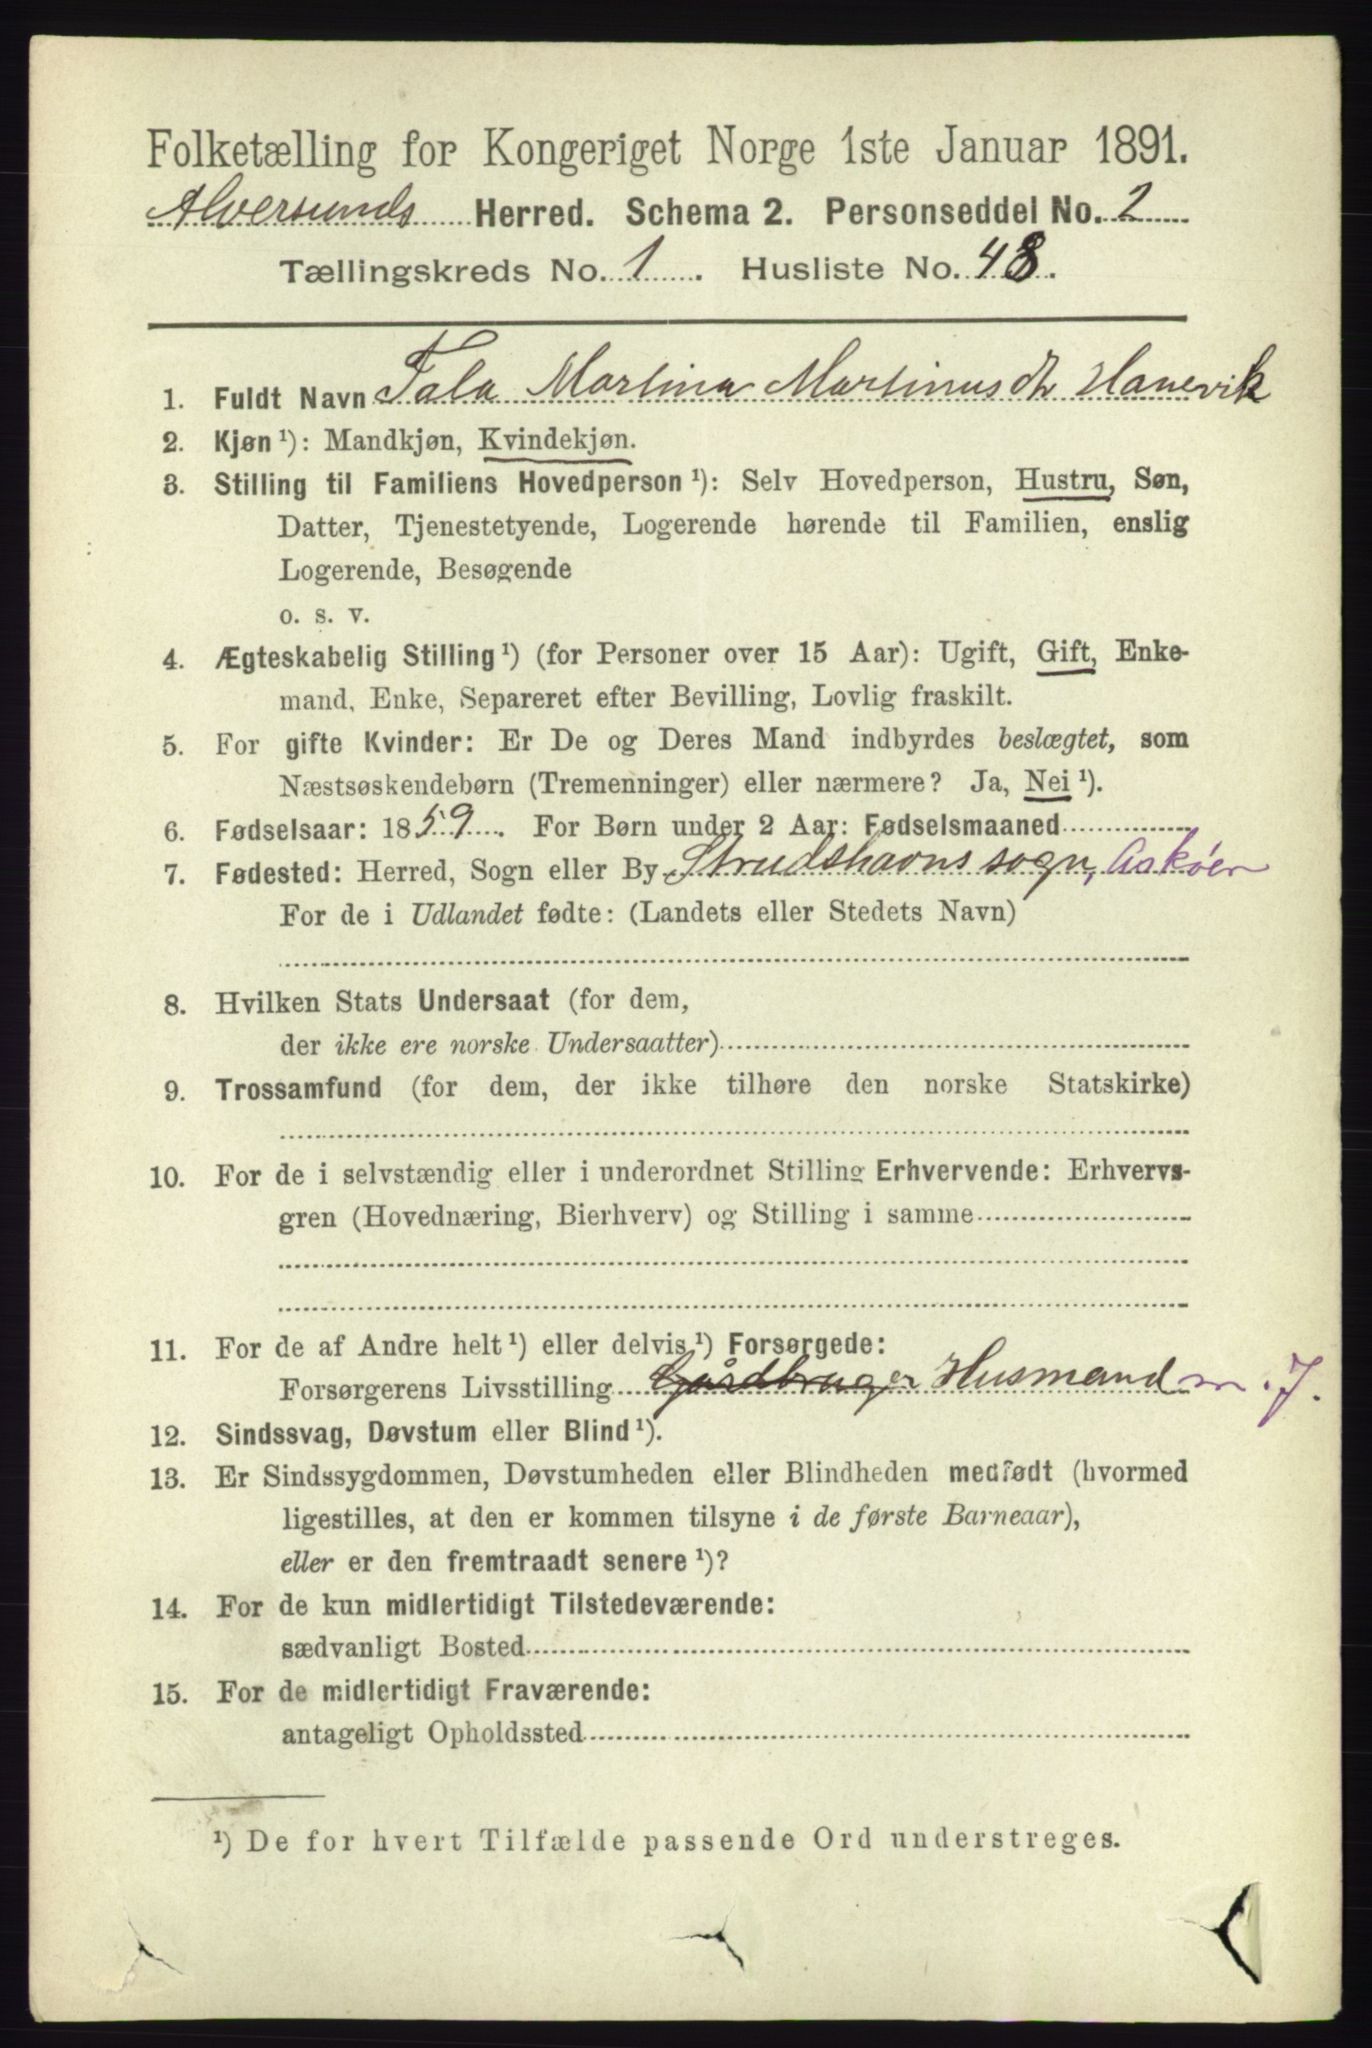 Folketælling for Kongeriget Norge 1ste Januar 1891.
Alversunds Herred. Schema 2. Personseddel No. 2
Tællingskreds No. 1. Husliste No. 48.
1. Fuldt Navn Tala Martina Martinusdtr Hanevik
2. Kjøn ¹): Mandkjøn, Kvindekjøn.
3. Stilling til Familiens Hovedperson ¹): Selv Hovedperson, Hustru, Søn,
Datter, Tjenestetyende, Logerende hørende til Familien, enslig
Logerende, Besøgende
o. s. v.
4. Ægteskabelig Stilling ¹) (for Personer over 15 Aar): Ugift, Gift, Enke-
mand, Enke, Separeret efter Bevilling, Lovlig fraskilt.
5. For gifte Kvinder: Er De og Deres Mand indbyrdes beslægtet, som
Næstsøskendebørn (Tremenninger) eller nærmere? Ja, Nei ¹).
6. Fødselsaar: 1859. For Børn under 2 Aar: Fødselsmaaned
7. Fødested: Herred, Sogn eller By Strudshavns sogn, Askøen
For de i Udlandet fødte: (Landets eller Stedets Navn)
8. Hvilken Stats Undersaat (for dem,
der ikke ere norske Undersaatter)
9. Trossamfund (for dem, der ikke tilhøre den norske Statskirke)
10. For de i selvstændig eller i underordnet Stilling Erhvervende: Erhvervs-
gren (Hovednæring, Bierhverv) og Stilling i samme
11. For de af Andre helt ¹) eller delvis ¹) Forsørgede:
Forsørgerens Livsstilling Gårdbruger Husmand m. J.
12. Sindssvag, Døvstum eller Blind ¹).
13. Er Sindssygdommen, Døvstumheden eller Blindheden medfødt (hvormed
ligestilles, at den er kommen tilsyne i de første Barneaar),
eller er den fremtraadt senere ¹)?
14. For de kun midlertidigt Tilstedeværende:
sædvanligt Bosted
15. For de midlertidigt Fraværende:
antageligt Opholdssted
¹) De for hvert Tilfælde passende Ord understreges.